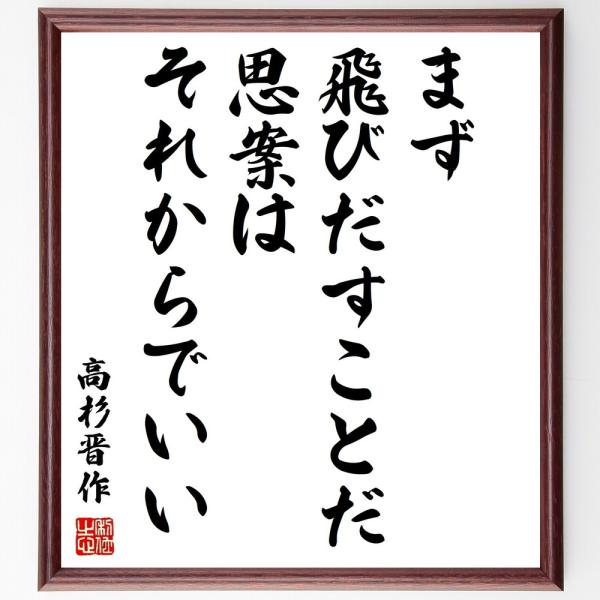 まず
飛びだすことだ
思案は
それからでいい
高杉晋作